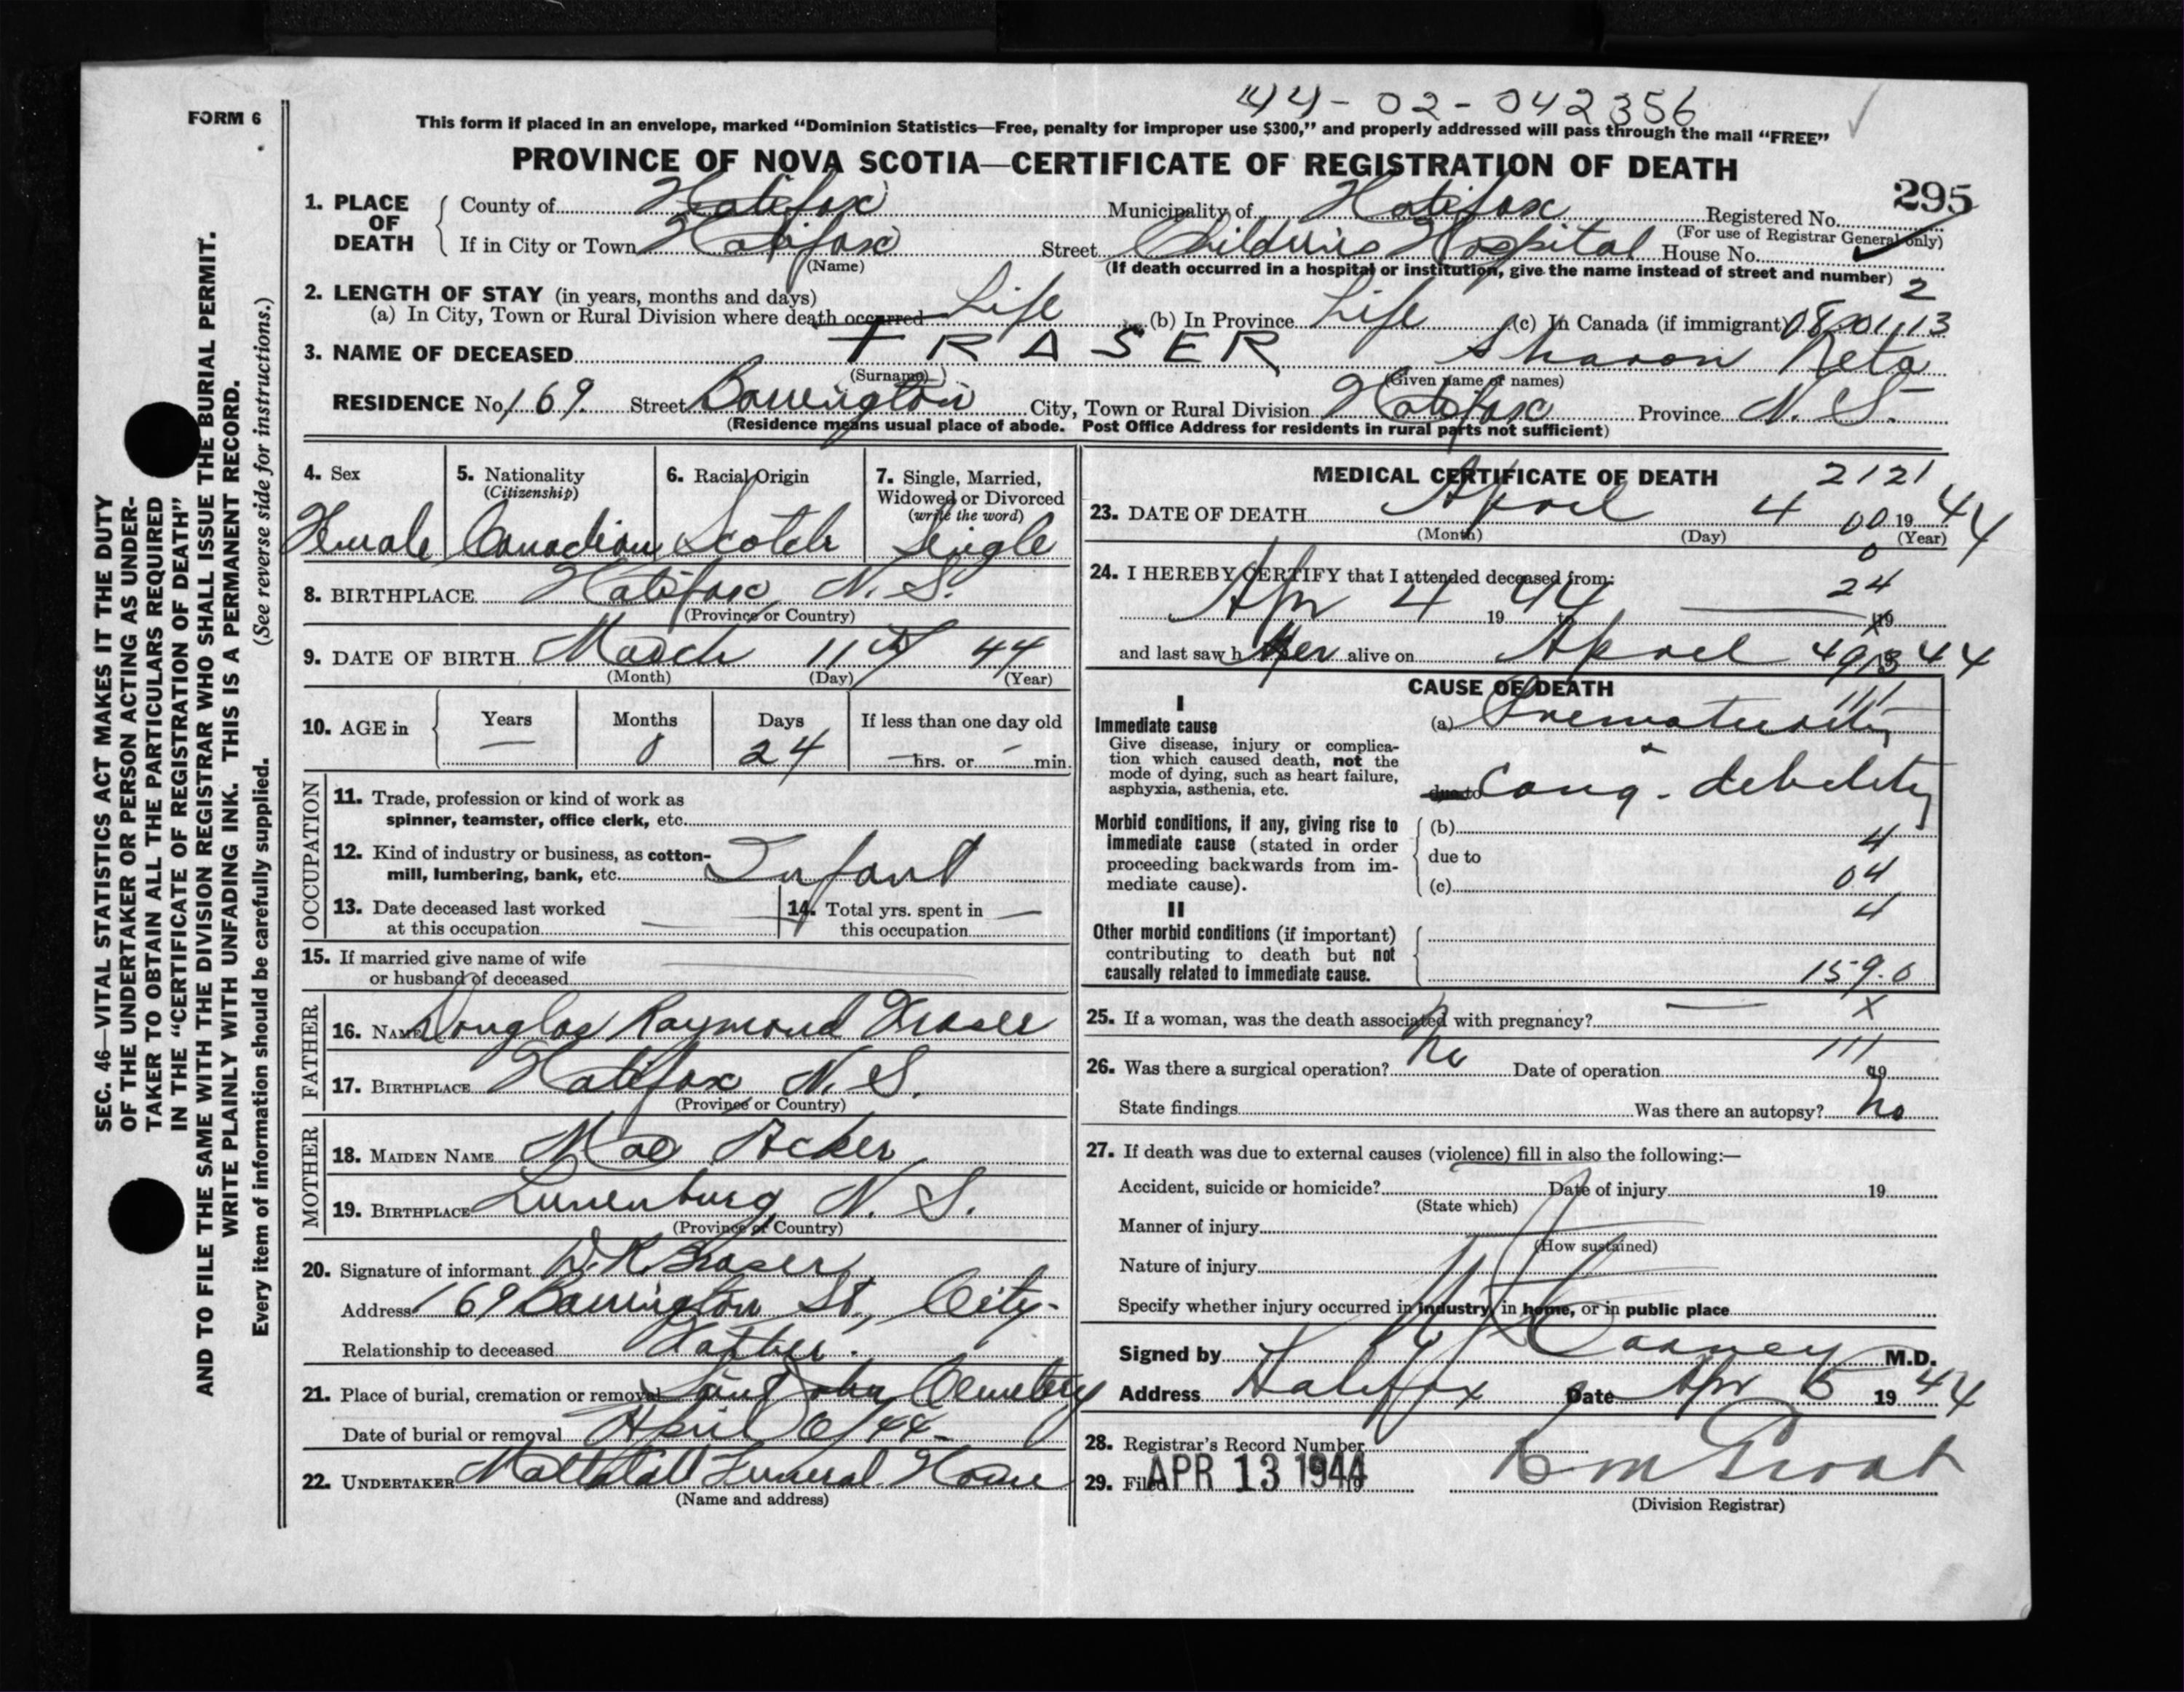 44-02-042356
FORM 6
This form if placed in an envelope, marked "Dominion Statistics—Free, penalty for improper use $300," and properly addressed will pass through the mail "FREE"
PROVINCE OF NOVA SCOTIA—CERTIFICATE OF REGISTRATION OF DEATH
295
1. PLACE OF DEATH County of Halifax Municipality of Halifax Registered No.
(For use of Registrar General only)
If in City or Town Halifax Street Childrens Hospital House No.
(Name) (If death occurred in a hospital or institution, give the name instead of street and number)
2
2. LENGTH OF STAY (in years, months and days)
(a) In City, Town or Rural Division where death occurred Life (b) In Province Life (c) In Canada (if immigrant)
3. NAME OF DECEASED FRASER Sharon Neta
(Surname) (Given name or names)
RESIDENCE No. 169. Street Barrington City, Town or Rural Division Halifax Province N. S.
(Residence means usual place of abode. Post Office Address for residents in rural parts not sufficient)
4. Sex 5. Nationality (Citizenship) 6. Racial Origin 7. Single, Married, Widowed or Divorced (write the word)
Female Canadian Scotch Single
8. BIRTHPLACE Halifax, N. S.
(Province or Country)
9. DATE OF BIRTH March 11th 44
(Month) (Day) (Year)
10. AGE in Years Months Days If less than one day old
— 0 24 — hrs. or — min.
OCCUPATION
11. Trade, profession or kind of work as
spinner, teamster, office clerk, etc.
12. Kind of industry or business, as cotton-
mill, lumbering, bank, etc. Infant
13. Date deceased last worked
at this occupation —
14. Total yrs. spent in
this occupation —
15. If married give name of wife
or husband of deceased
FATHER
16. NAME Douglas Raymond Fraser
17. BIRTHPLACE Halifax N. S.
(Province or Country)
MOTHER
18. MAIDEN NAME Mae Acker
19. BIRTHPLACE Lunenburg, N. S.
(Province or Country)
20. Signature of informant D. R. Fraser
Address 169 Barrington St., City-
Relationship to deceased Father.
21. Place of burial, cremation or removal Saint John Cemetery
Date of burial or removal April 6/44-
22. UNDERTAKER Mattatall Funeral Home
(Name and address)
MEDICAL CERTIFICATE OF DEATH 2121
23. DATE OF DEATH April 4 19 44
(Month) (Day) (Year)
00
0
24. I HEREBY CERTIFY that I attended deceased from:
24
Apr 4 19 44 to 19
and last saw her alive on April 4 19 44
CAUSE OF DEATH
I
Immediate cause
Give disease, injury or complica-
tion which caused death, not the
mode of dying, such as heart failure,
asphyxia, asthenia, etc.
(a) Prematurity
due to Cong. debility
Morbid conditions, if any, giving rise to
immediate cause (stated in order
proceeding backwards from im-
mediate cause).
(b) 4
due to
(c) 04
4
II
Other morbid conditions (if important)
contributing to death but not
causally related to immediate cause.
159.0
25. If a woman, was the death associated with pregnancy? — X
111
26. Was there a surgical operation? No Date of operation 19
State findings Was there an autopsy? No
27. If death was due to external causes (violence) fill in also the following:—
Accident, suicide or homicide? Date of injury 19
(State which)
Manner of injury
(How sustained)
Nature of injury
Specify whether injury occurred in industry, in home, or in public place
Signed by Carney M.D.
Address Halifax Date Apr 5 19 44
28. Registrar's Record Number
29. Filed APR 13 1944 19
(Division Registrar)
SEC. 46—VITAL STATISTICS ACT MAKES IT THE DUTY
OF THE UNDERTAKER OR PERSON ACTING AS UNDER-
TAKER TO OBTAIN ALL THE PARTICULARS REQUIRED
IN THE "CERTIFICATE OF REGISTRATION OF DEATH"
AND TO FILE THE SAME WITH THE DIVISION REGISTRAR WHO SHALL ISSUE THE BURIAL PERMIT.
WRITE PLAINLY WITH UNFADING INK. THIS IS A PERMANENT RECORD.
Every item of information should be carefully supplied. (See reverse side for instructions.)